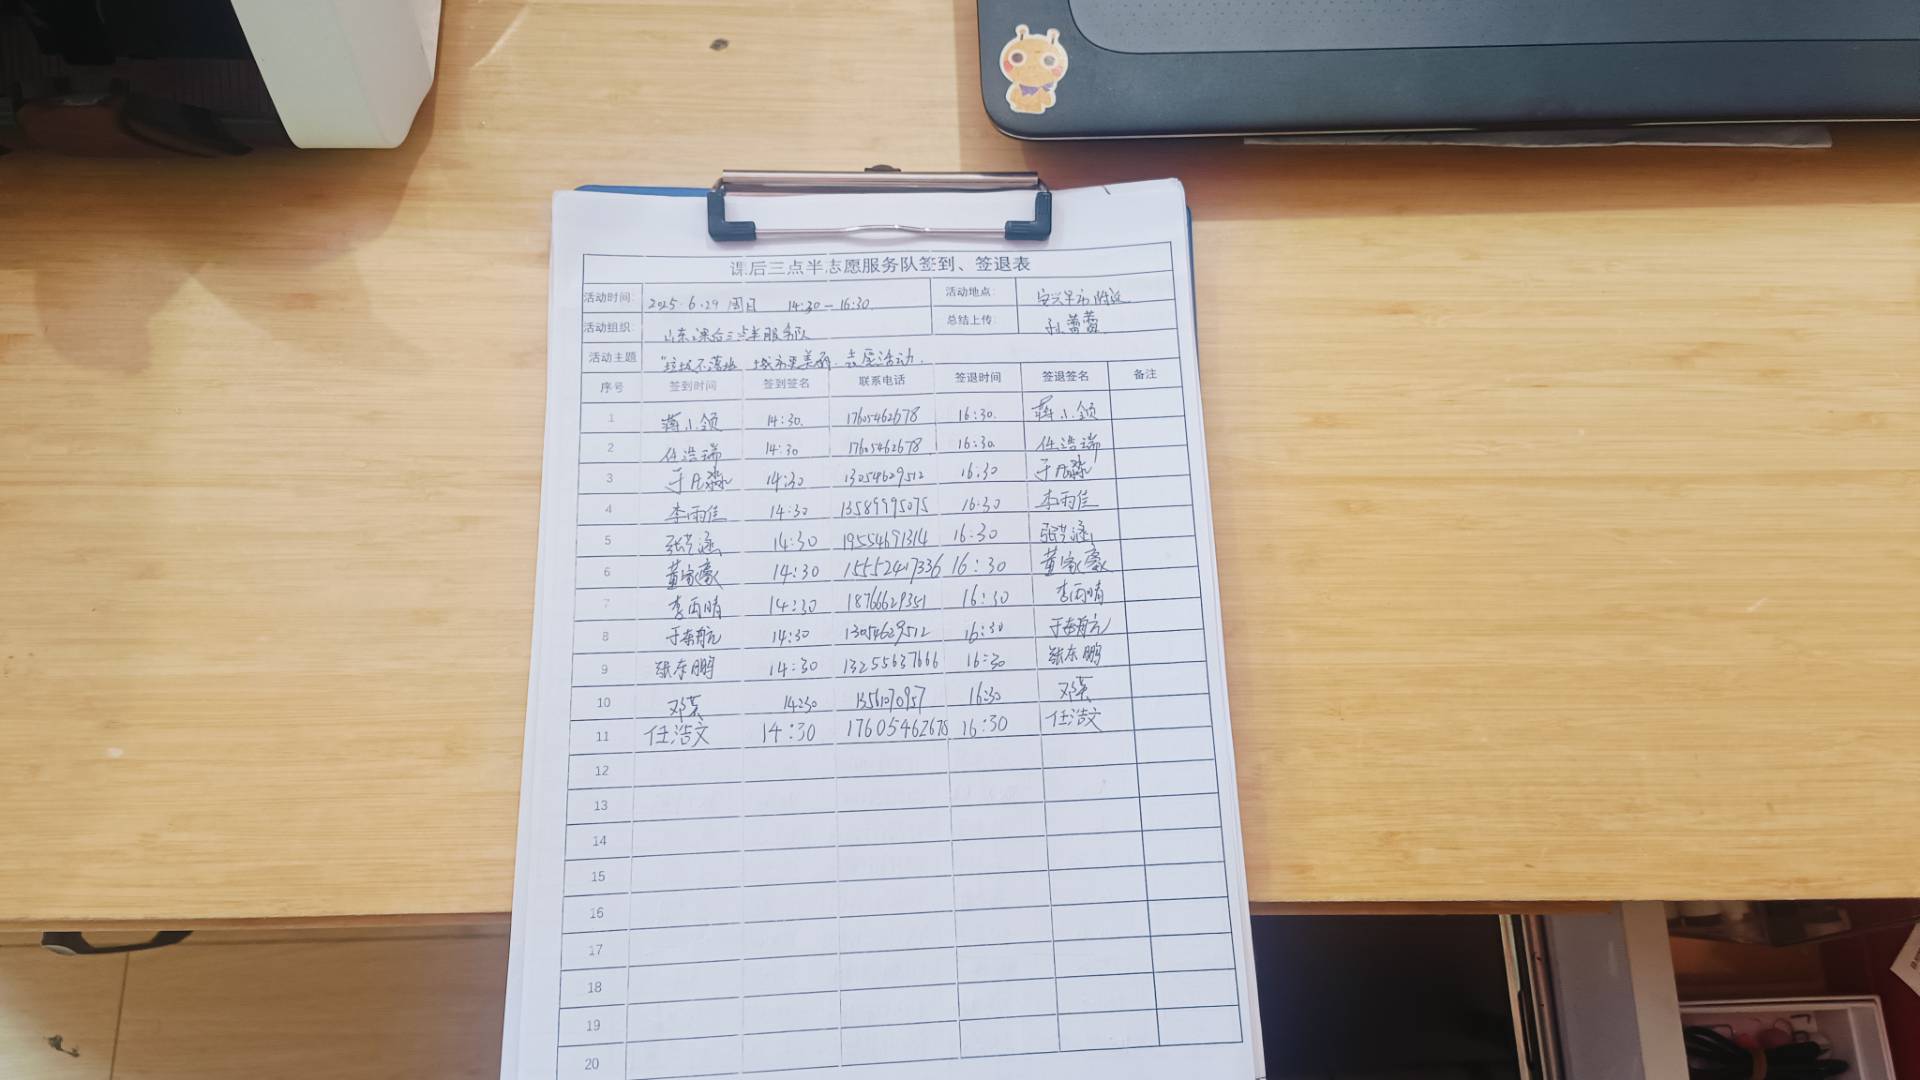 课后三点半志愿服务队签到、签退表
活动时间: 2025.6.29 周日 14:30-16:30 活动地点: 安兴早市附近
活动组织: 山东课后三点半服务队 总结上传: 孙蕾蕾
活动主题 "垃圾不落地 城市更美丽"志愿活动.
序号 签到时间 签到签名 联系电话 签退时间 签退签名 备注
1 蒋小领 14:30. 17605462678 16:30. 蒋小领
2 任浩瑞 14:30 17605462678 16:30. 任浩瑞
3 于凡淼 14:30 13054629512 16:30 于凡淼
4 李雨佳 14:30 13589995075 16:30 李雨佳
5 张艺涵 14:30 19554691314 16:30 张艺涵
6 董家豪 14:30 15552417336 16:30 董家豪
7 李雨晴 14:30 18766629351 16:30 李雨晴
8 于春航 14:30 13054629512 16:30 于春航
9 张东鹏 14:30 13255637666 16:30 张东鹏
10 邓英 14:30 13561070957 16:30 邓英
11 任浩文 14:30 17605462678 16:30 任浩文
12
13
14
15
16
17
18
19
20